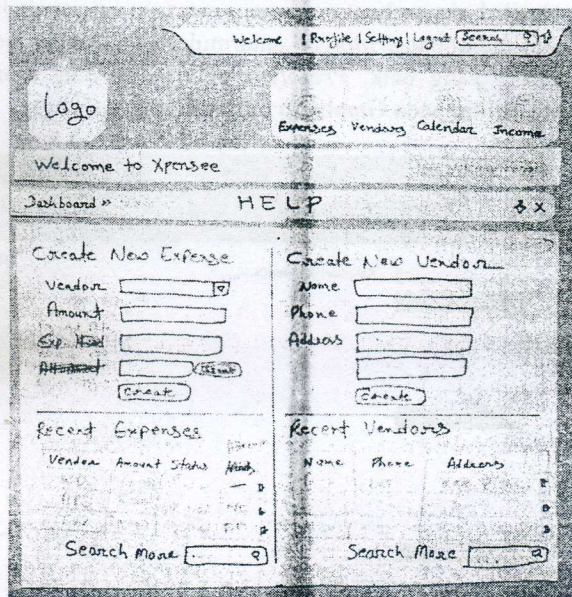 Welcome | Profile | Setting | Logout Search
Logo
Expenses Vendors Calendar Income
Welcome to Xpensee
Dashboard »
HELP
X
Create New Expense
Vendor
Amount
Exp.
Create
Create New Vendor
Name
Phone
Address
Create
Recent Expenses
Vendor Amount Status
Search More
Recent Vendors
Name Phone Address
Search More